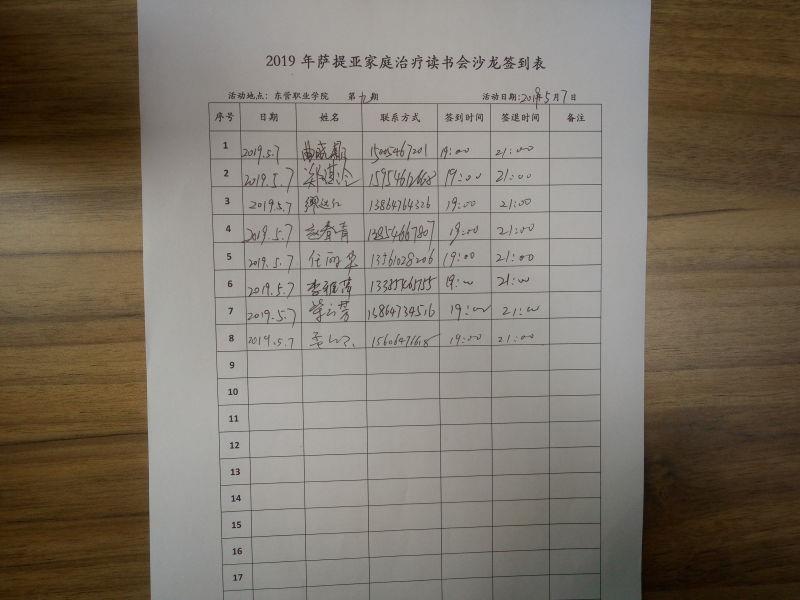 2019 年萨提亚家庭治疗读书会沙龙签到表
活动地点：东营职业学院 第九期 活动日期:2019年5月7日
序号 日期 姓名 联系方式 签到时间 签退时间 备注
1 2019.5.7 15005467201 19:00 21:00
2 2019.5.7 19:00 21:00
3 2019.5.7 13864764326 19:00 21:00
4 2019.5.7 赵春青 13854667807 19:00 21:00
5 2019.5.7 任丽华 13561028206 19:00 21:00
6 2019.5.7 李雅萍 19:00 21:00
7 2019.5.7 13864734516 19:00 21:00
8 2019.5.7 19:00 21:00
9
10
11
12
13
14
15
16
17